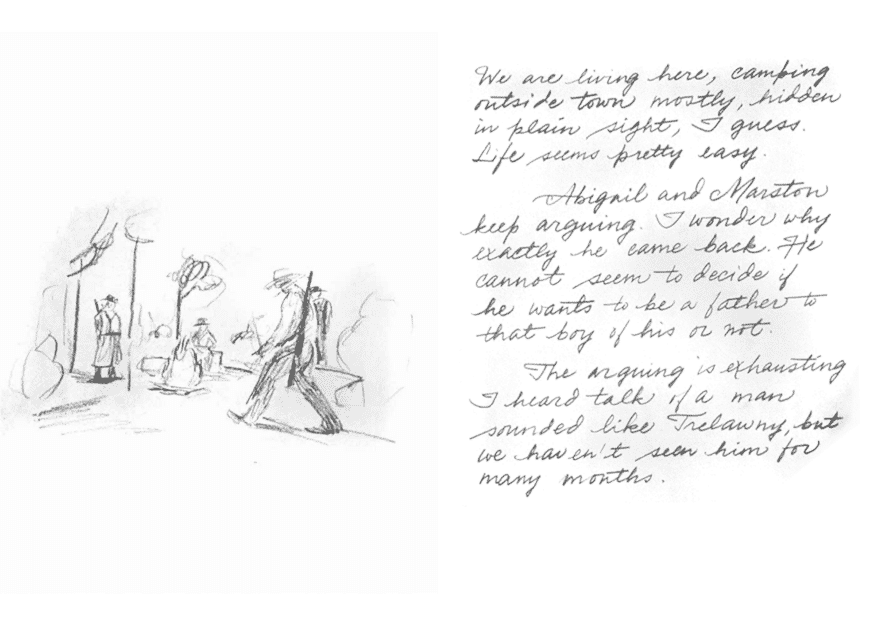 We are living here, camping
outside town mostly, hidden
in plain sight, I guess.
Life seems pretty easy.
Abigail and Marston
keep arguing. I wonder why
exactly he came back. He
cannot seem to decide if
he wants to be a father to
that boy of his or not.
The arguing is exhausting
I heard talk of a man
sounded like Trelawny, but
we haven't seen him for
many months.